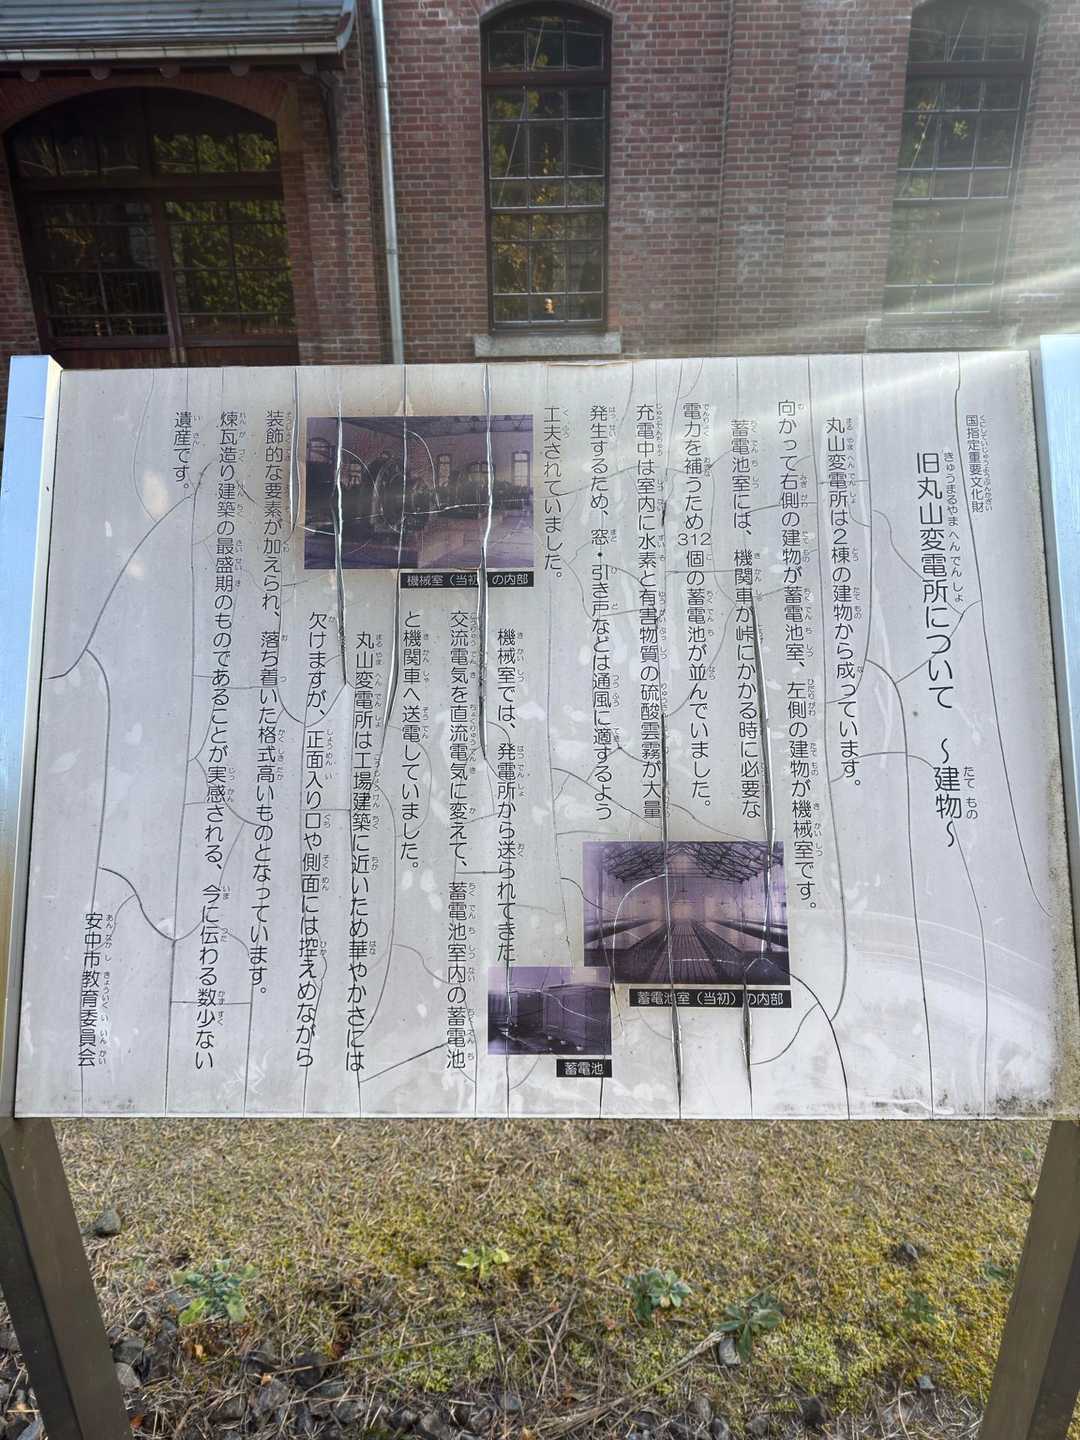 国指定重要文化財
旧丸山変電所について　～建物～
丸山変電所は2棟の建物から成っています。
向かって右側の建物が蓄電池室、左側の建物が機械室です。
蓄電池室には、機関車が峠にかかる時に必要な
電力を補うため312個の蓄電池が並んでいました。
充電中は室内に水素と有害物質の硫酸雲霧が大量
発生するため、窓・引き戸などは通風に適するよう
工夫されていました。
蓄電池室（当初）の内部
蓄電池
機械室（当初）の内部
機械室では、発電所から送られてきた
交流電気を直流電気に変えて、蓄電池室内の蓄電池
と機関車へ送電していました。
丸山変電所は工場建築に近いため華やかさには
欠けますが、正面入り口や側面には控えめながら
装飾的な要素が加えられ、落ち着いた格式高いものとなっています。
煉瓦造り建築の最盛期のものであることが実感される、今に伝わる数少ない
遺産です。
安中市教育委員会